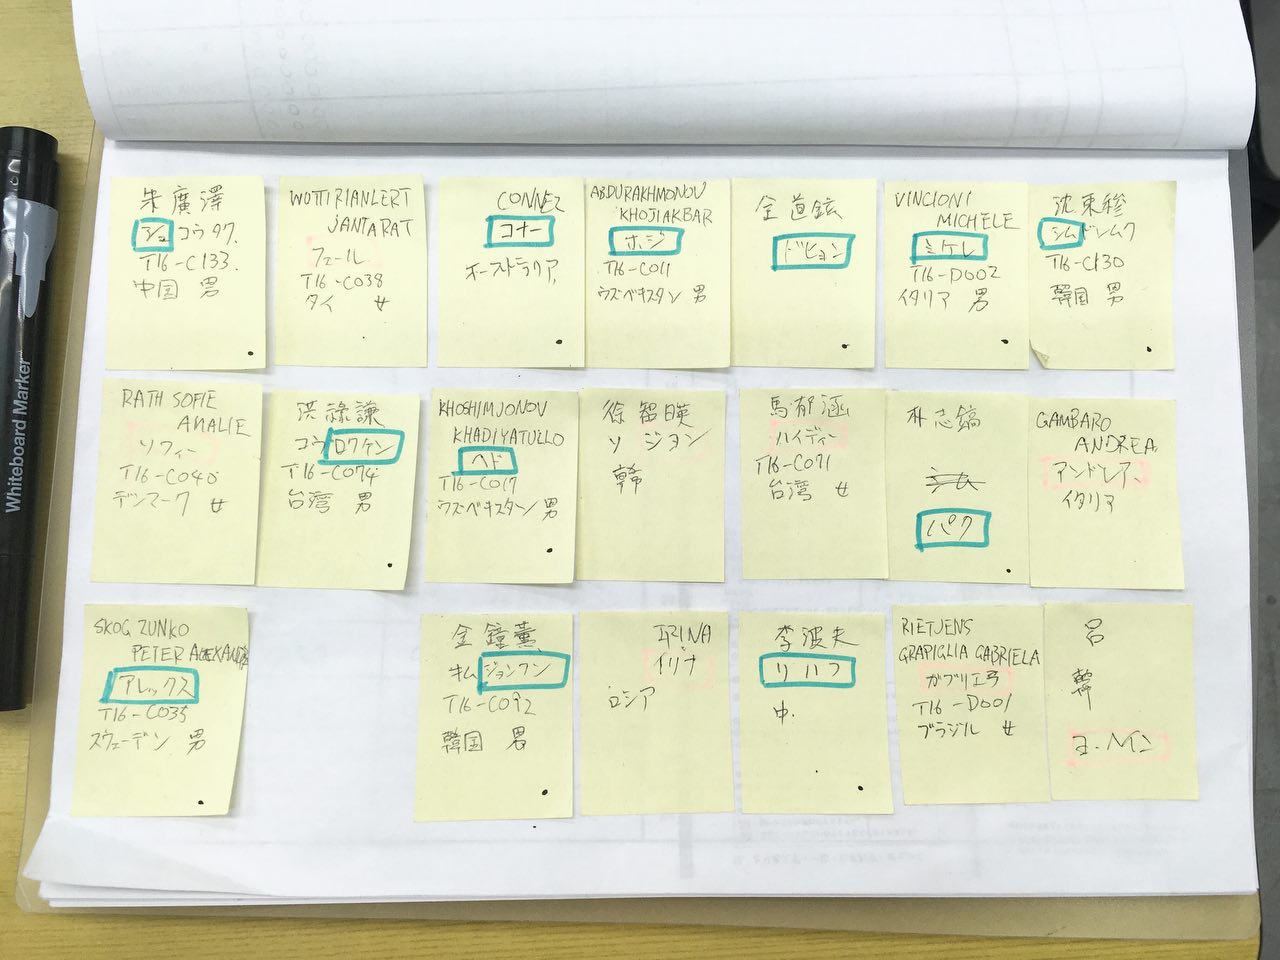 朱廣澤
シュコウタク
T16-C133
中国 男
WOTTIRIANLERT
JANTARAT
フェール
T16-C038
タイ 女
CONNER
コナー
オーストラリア
ABDURAKHMONOV
KHOJIAKBAR
ホジ
T16-C011
ウズベキスタン 男
金道鉉
ドヒョン
VINCIONI
MICHELE
ミケレ
T16-D002
イタリア 男
沈東穆
シムドンムク
T16-C130
韓国 男
RATH SOFIE
AMALIE
ソフィー
T16-C040
デンマーク 女
洪祿謙
コウロクケン
T16-C074
台湾 男
KHOSHIMJONOV
KHADIYATULLO
ヘド
T16-C017
ウズベキスタン 男
徐智暎
ソ ジヨン
韓
馬郁涵
ハイディー
T16-C071
台湾 女
朴志鎬
パク
GAMBARO
ANDREA
アンドレア
イタリア
SKOG ZUNKO
PETER ALEXANDER
アレックス
T16-C035
スウェーデン 男
金鐘薫
キム ジョンフン
T16-C092
韓国 男
IRINA
イリナ
ロシア
李波夫
リハフ
中
RIETJENS
GRAPIGLIA GABRIELA
ガブリエラ
T16-D001
ブラジル 女
呂
韓
ヨーミン
Whiteboard Marker